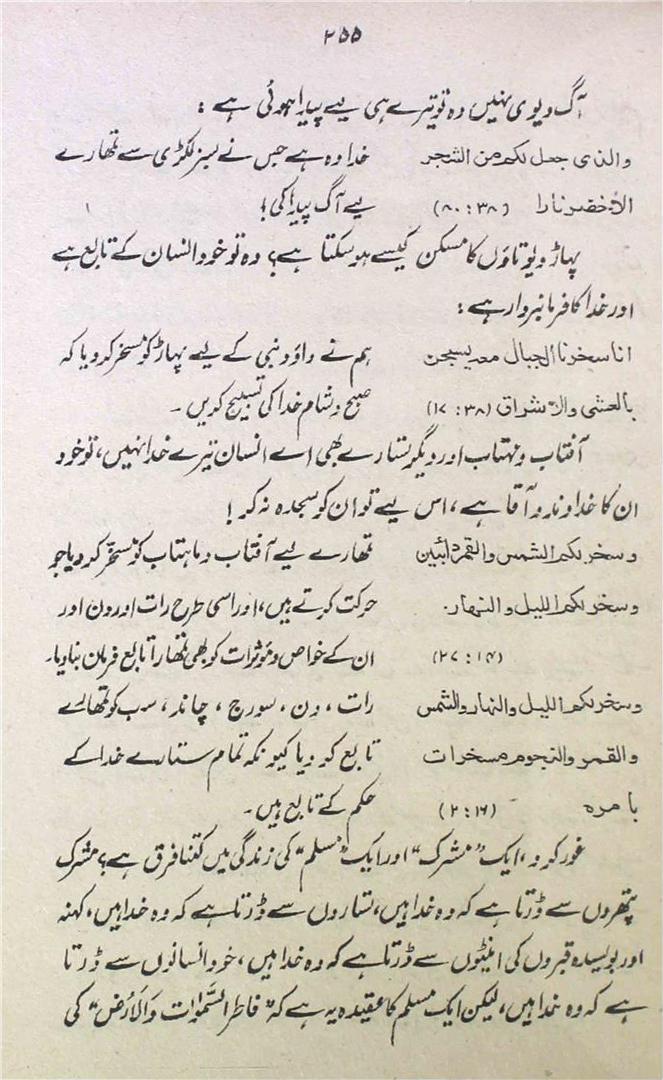 ۲۵۵
آگ دیوی نہیں وہ تو تیرے ہی لیے پیدا ہوئی ہے :
والذی جعل لکم من الشجر خدا وہ ہے جس نے سبز لکڑی سے تمھارے
الأخضر نارا (۳۸:۸۰) لیے آگ پیدا کی!
پہاڑ دیوتاؤں کا مسکن کیسے ہو سکتا ہے؟ وہ تو خود انسان کے تابع ہے
اور خدا کا فرمانبردار ہے :
انا سخرنا الجبال معہ یسبحن ہم نے داؤد نبی کے لیے پہاڑ کو مسخر کر دیا کہ
بالعشی والاشراق (۳۸:۱۷) صبح و شام خدا کی تسبیح کریں۔
آفتاب و مہتاب اور دیگر ستارے بھی اے انسان تیرے خدا نہیں، تو خود
ان کا خداوند و آقا ہے، اس لیے تو ان کو سجدہ نہ کر!
وسخر لکم الشمس والقمر دائبین تمھارے لیے آفتاب و ماہتاب کو مسخر کر دیا جو
وسخر لکم اللیل والنہار. حرکت کرتے ہیں، اور اسی طرح رات اور دن اور
(۱۴:۲۷) ان کے خواص و مؤثرات کو بھی تمھارا تابع فرمان بنا دیا۔
وسخر لکم اللیل والنہار والشمس رات، دن، سورج، چاند، سب کو تمھارے
والقمر والنجوم مسخرات تابع کر دیا کیونکہ تمام ستارے خدا کے
بامرہ (۲:۱۶) حکم کے تابع ہیں۔
غور کرو، ایک "مشرک" اور ایک "مسلم" کی زندگی میں کتنا فرق ہے؟ مشرک
پتھروں سے ڈرتا ہے کہ وہ خدا ہیں، ستاروں سے ڈرتا ہے کہ وہ خدا ہیں، کہنہ
اور بوسیدہ قبروں کی اینٹوں سے ڈرتا ہے کہ وہ خدا ہیں، خود انسانوں سے ڈرتا
ہے کہ وہ خدا ہیں، لیکن ایک مسلم کا عقیدہ یہ ہے کہ "فاطر السَّمٰوٰت وَالْاَرْض" کی